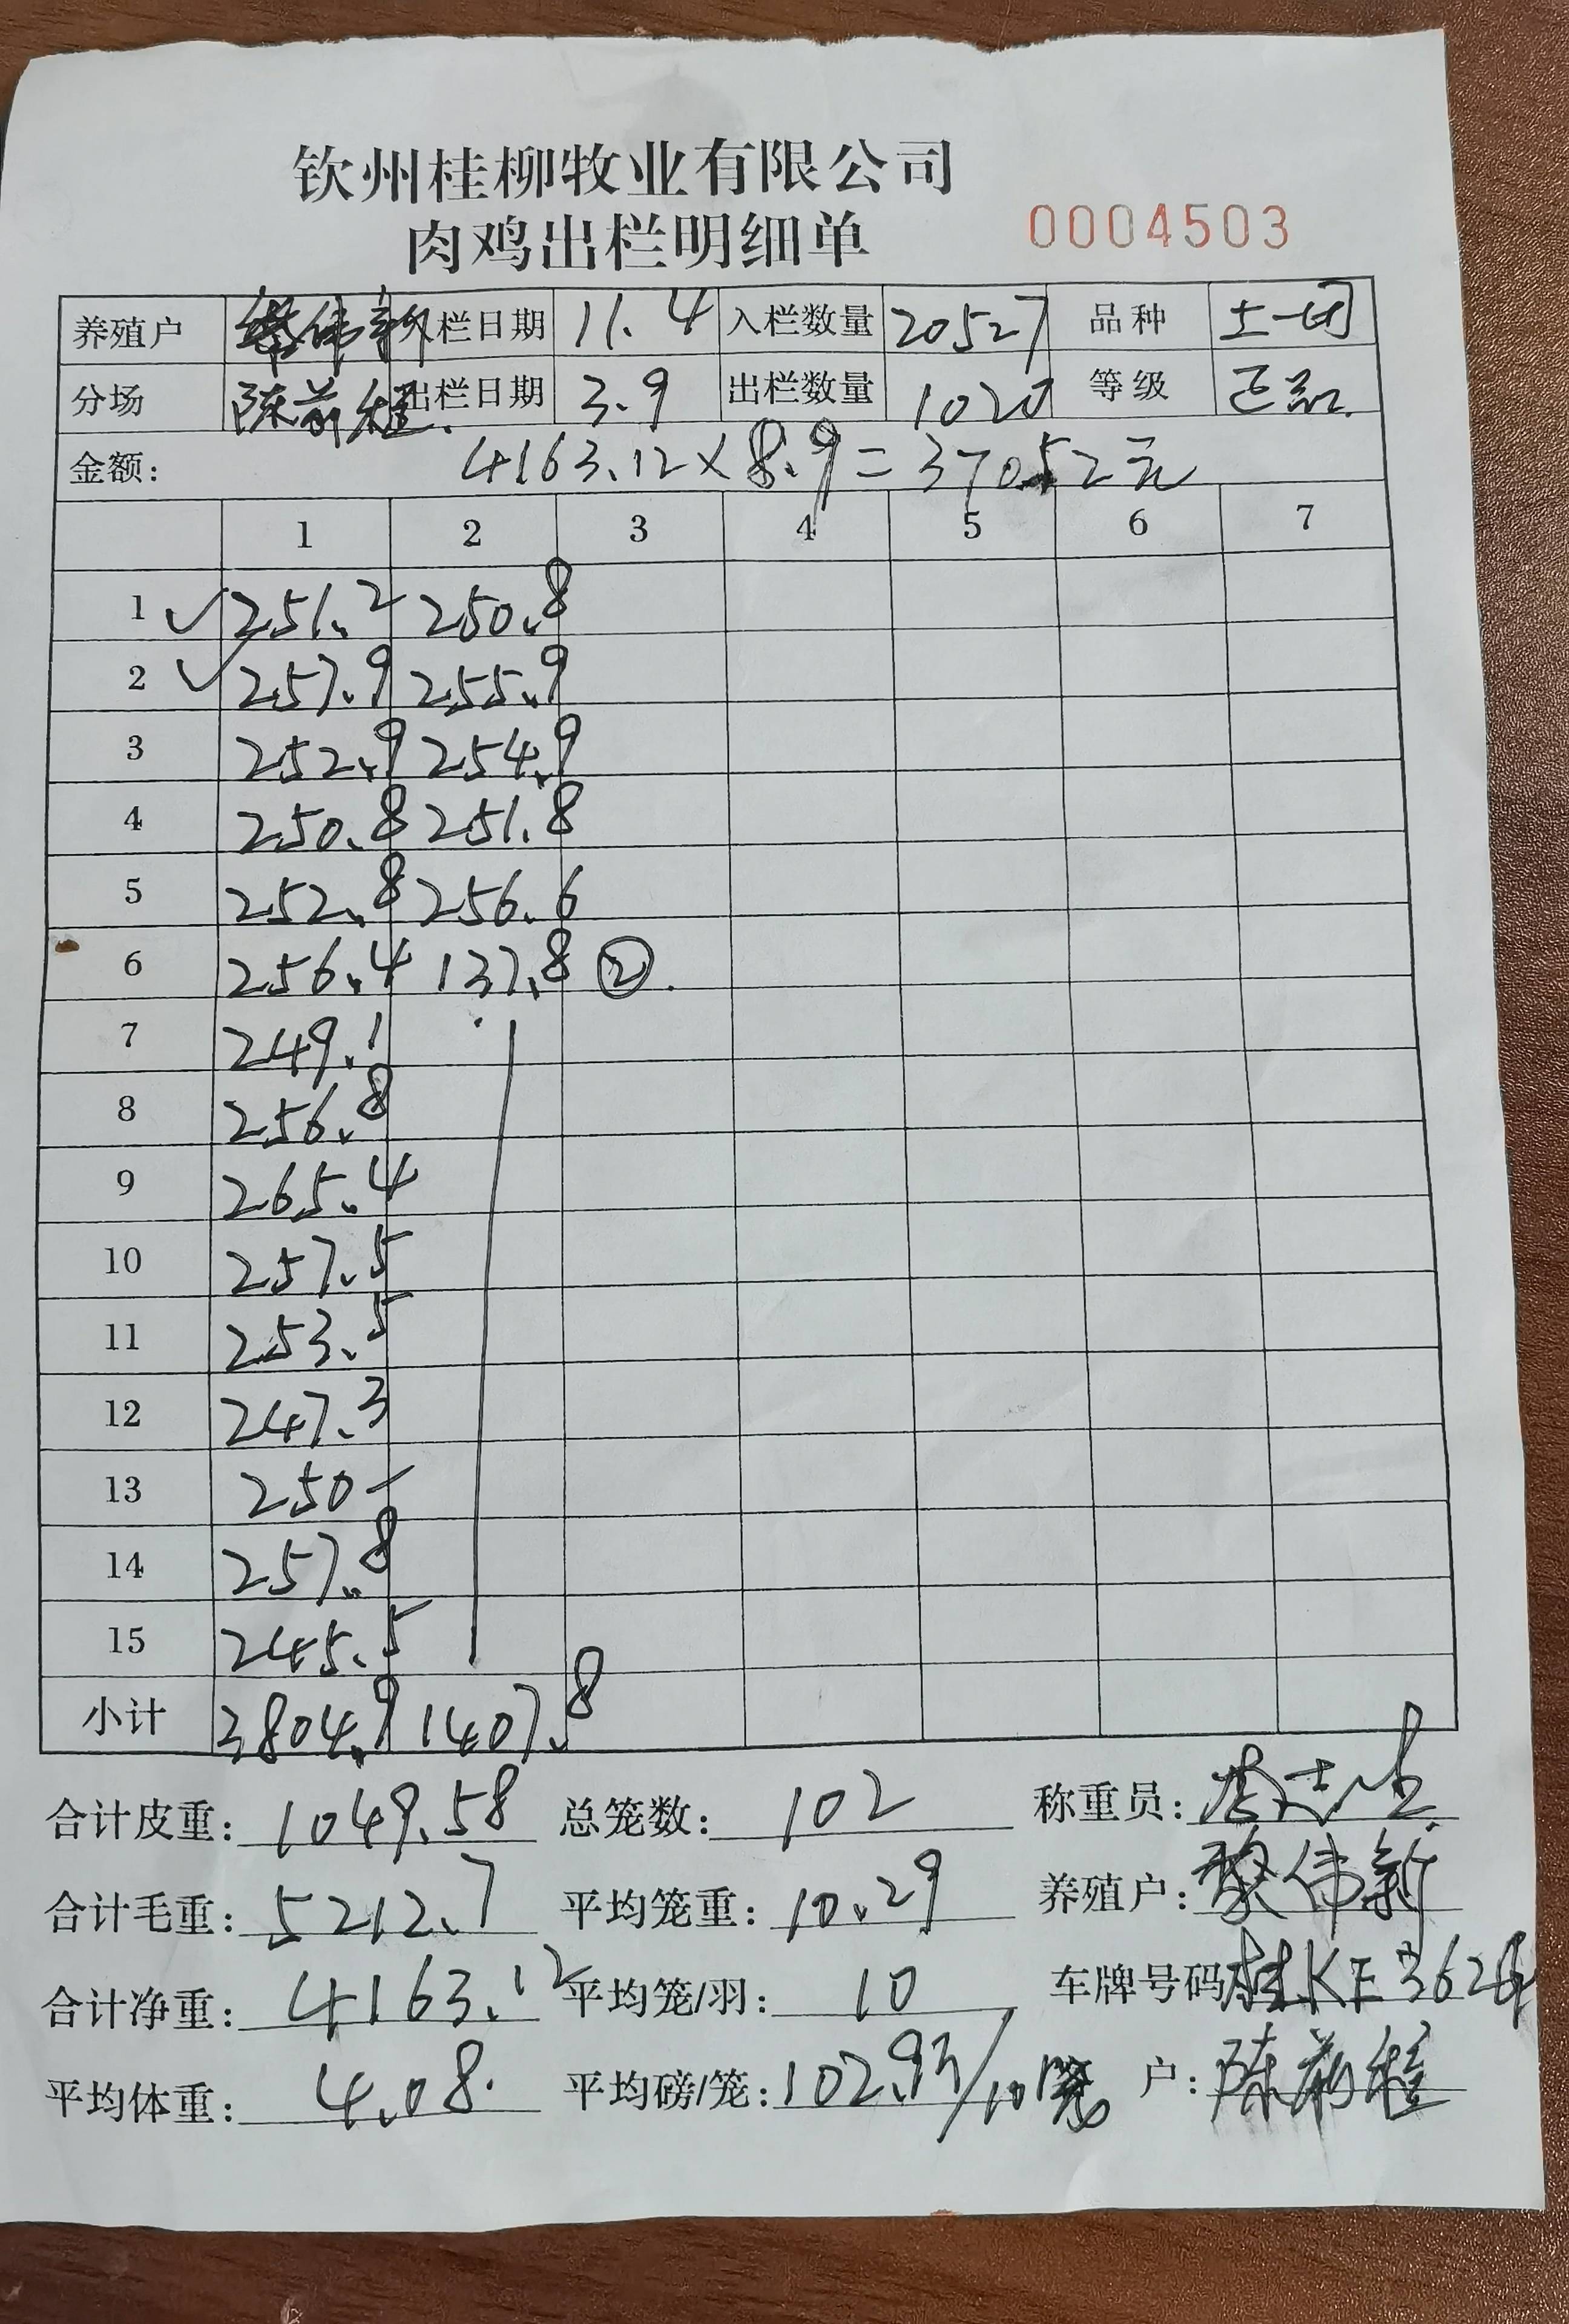 钦州桂柳牧业有限公司
肉鸡出栏明细单 0004503
养殖户 黎伟新 入栏日期 11.4 入栏数量 20527 品种 土一
分场 陈前程. 出栏日期 3.9 出栏数量 1020 等级 正品.
金额: 4163.12×8.9=37052元
1 2 3 4 5 6 7
1 ✓ 251.2 250.8
2 ✓ 257.9 255.9
3 252.9 254.9
4 250.8 251.8
5 252.8 256.6
6 256.4 137.8 ②.
7 249.1
8 256.8
9 265.4
10 257.5
11 253.5
12 247.3
13 250 -
14 257.8
15 245.5
小计 3804.9 1407.8
合计皮重: 1049.58 总笼数: 102 称重员:
合计毛重: 5212.7 平均笼重: 10.29 养殖户: 黎伟新
合计净重: 4163.12 平均笼/羽: 10 车牌号码 桂KF3624
平均体重: 4.08. 平均磅/笼: 102.93/10 户: 陈前程